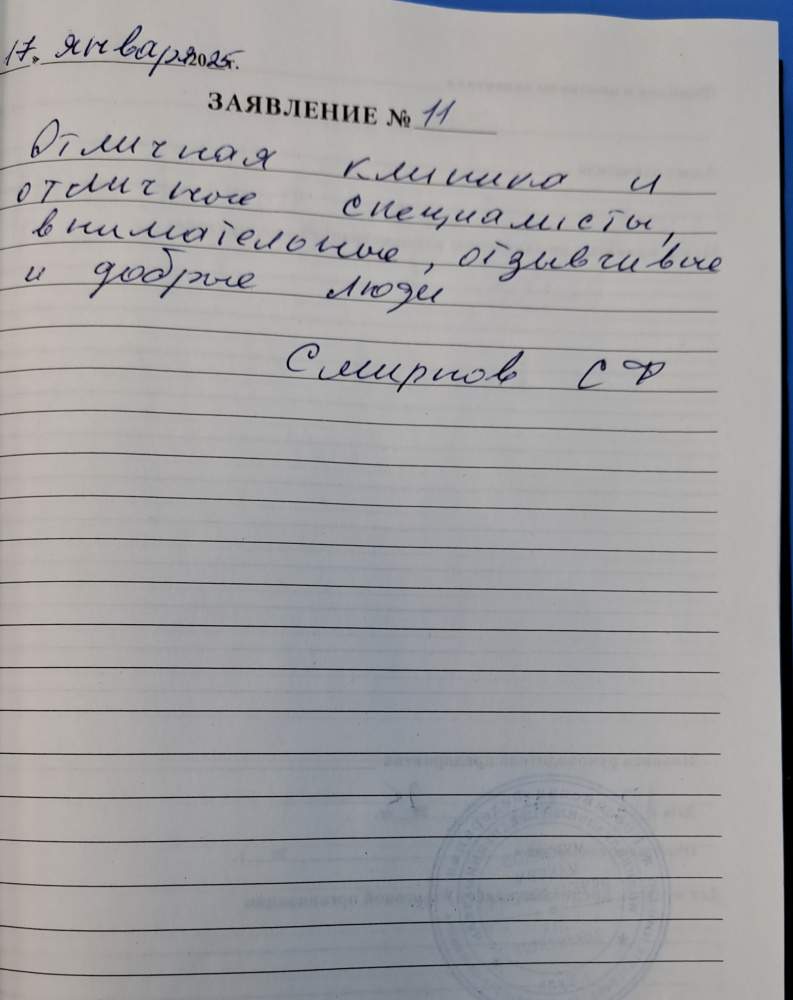 17. января 2025г.
ЗАЯВЛЕНИЕ № 11
Отличная клиника и
отличные специалисты,
внимательные, отзывчивые
и добрые люди
Смирнов С Ф